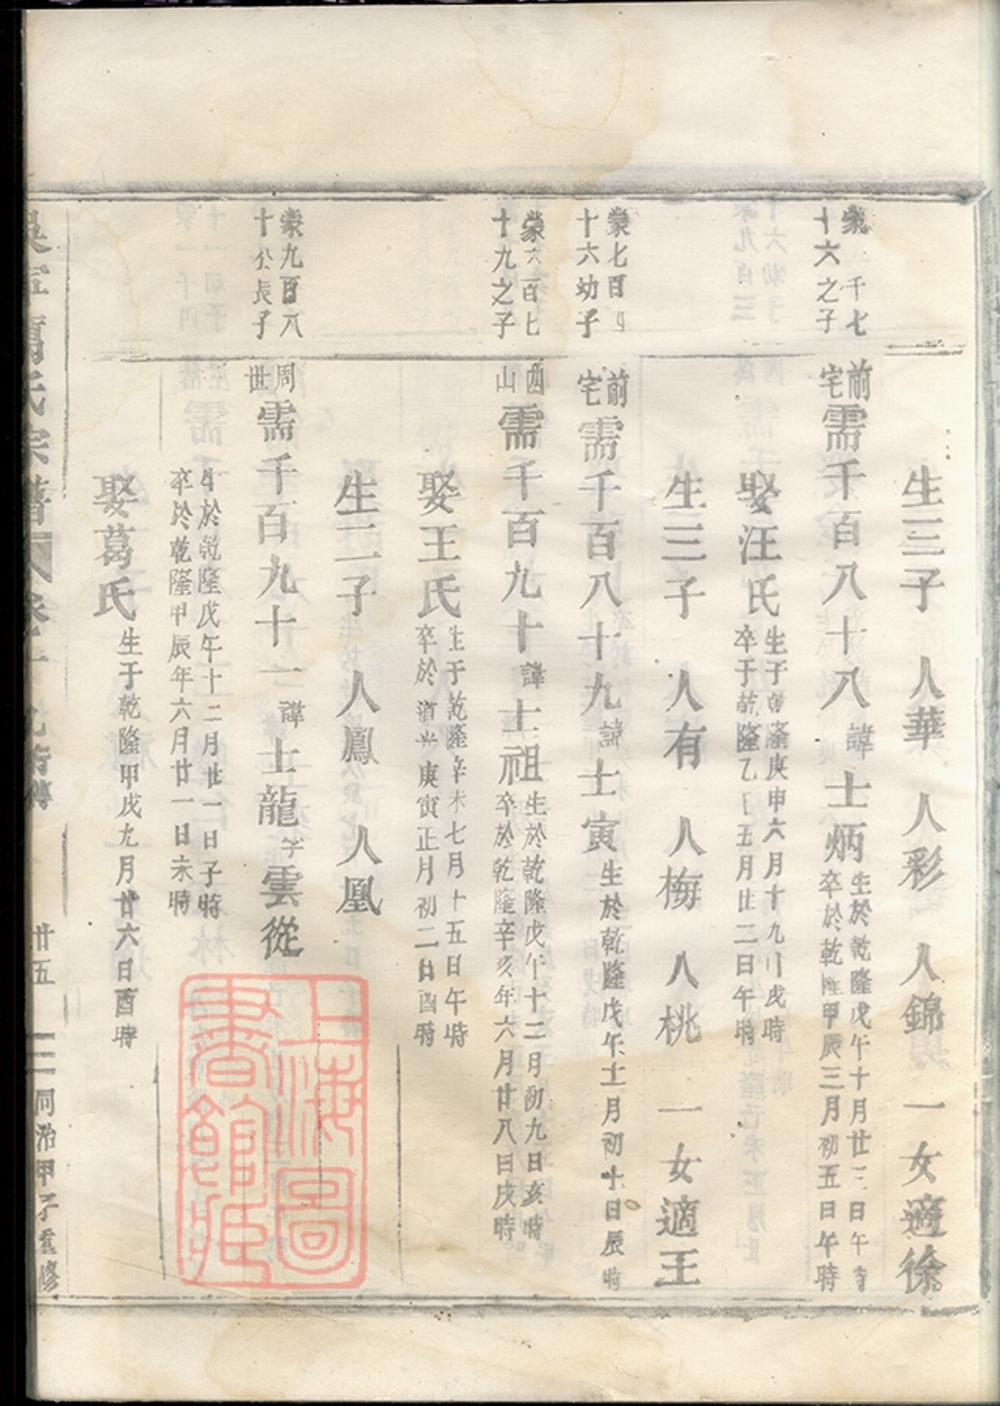 生三子 人華 人彩 人錦 一女適徐
千七
十六之子
前宅需千百八十八諱士炳
生於乾隆戊午十月廿三日午時
卒於乾隆甲辰三月初五日午時
娶汪氏
生于乾隆庚申六月十九日戌時
卒于乾隆乙五月廿二日午時
生三子 人有 人梅 人桃 一女適王
蒙七百四
十六幼子
前宅需千百八十九諱士寅
生於乾隆戊午十二月初十日辰時
蒙六百七
十九之子
西山需千百九十諱士祖
生於乾隆戊午十二月初九日亥時
卒於乾隆辛亥年六月廿八日戌時
娶王氏
生于乾隆辛未七月十五日午時
卒於道光庚寅正月初二日酉時
生二子 人鳳 人凰
蒙九百八
十公長子
周世需千百九十一諱士龍字雲從
生於乾隆戊午十二月廿一日子時
卒於乾隆甲辰年六月廿一日未時
娶葛氏
生于乾隆甲戌九月廿六日酉時
葛氏宗譜
廿五
同治甲子重修
上海圖書館藏